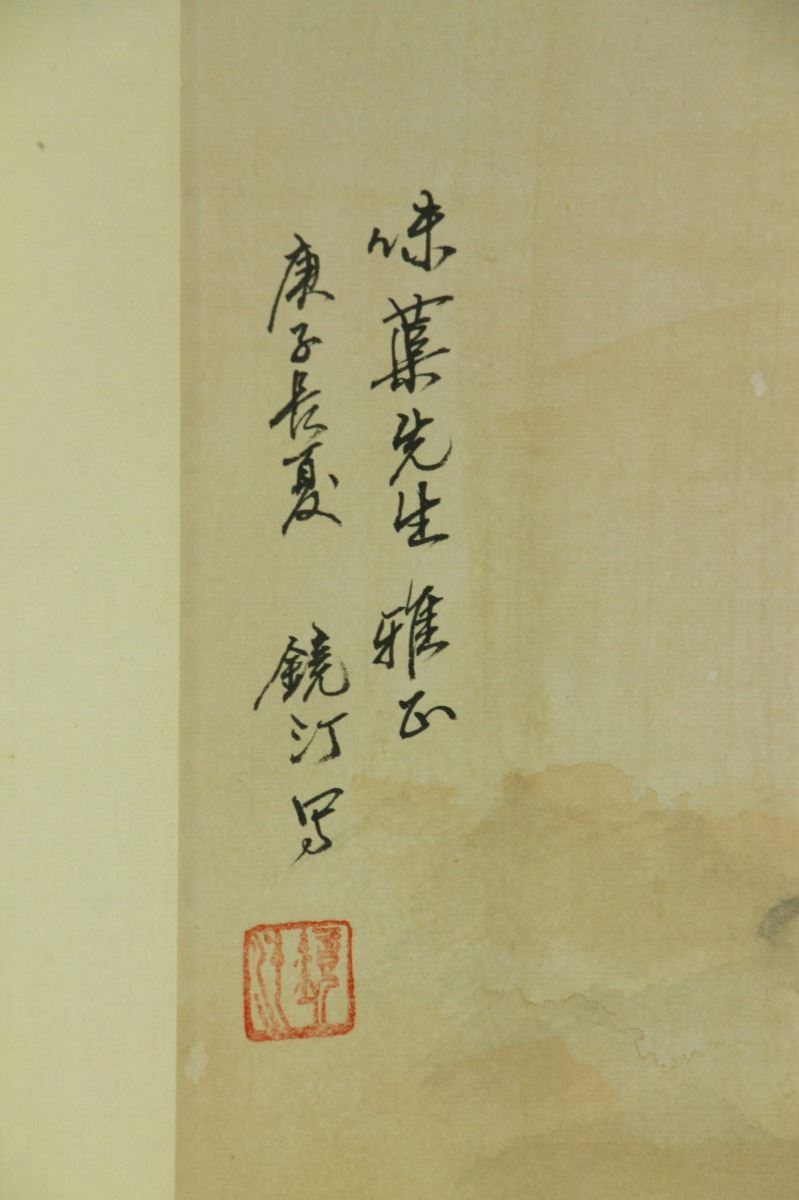 味蕖先生雅正
庚子長夏 鏡汀写
鏡汀